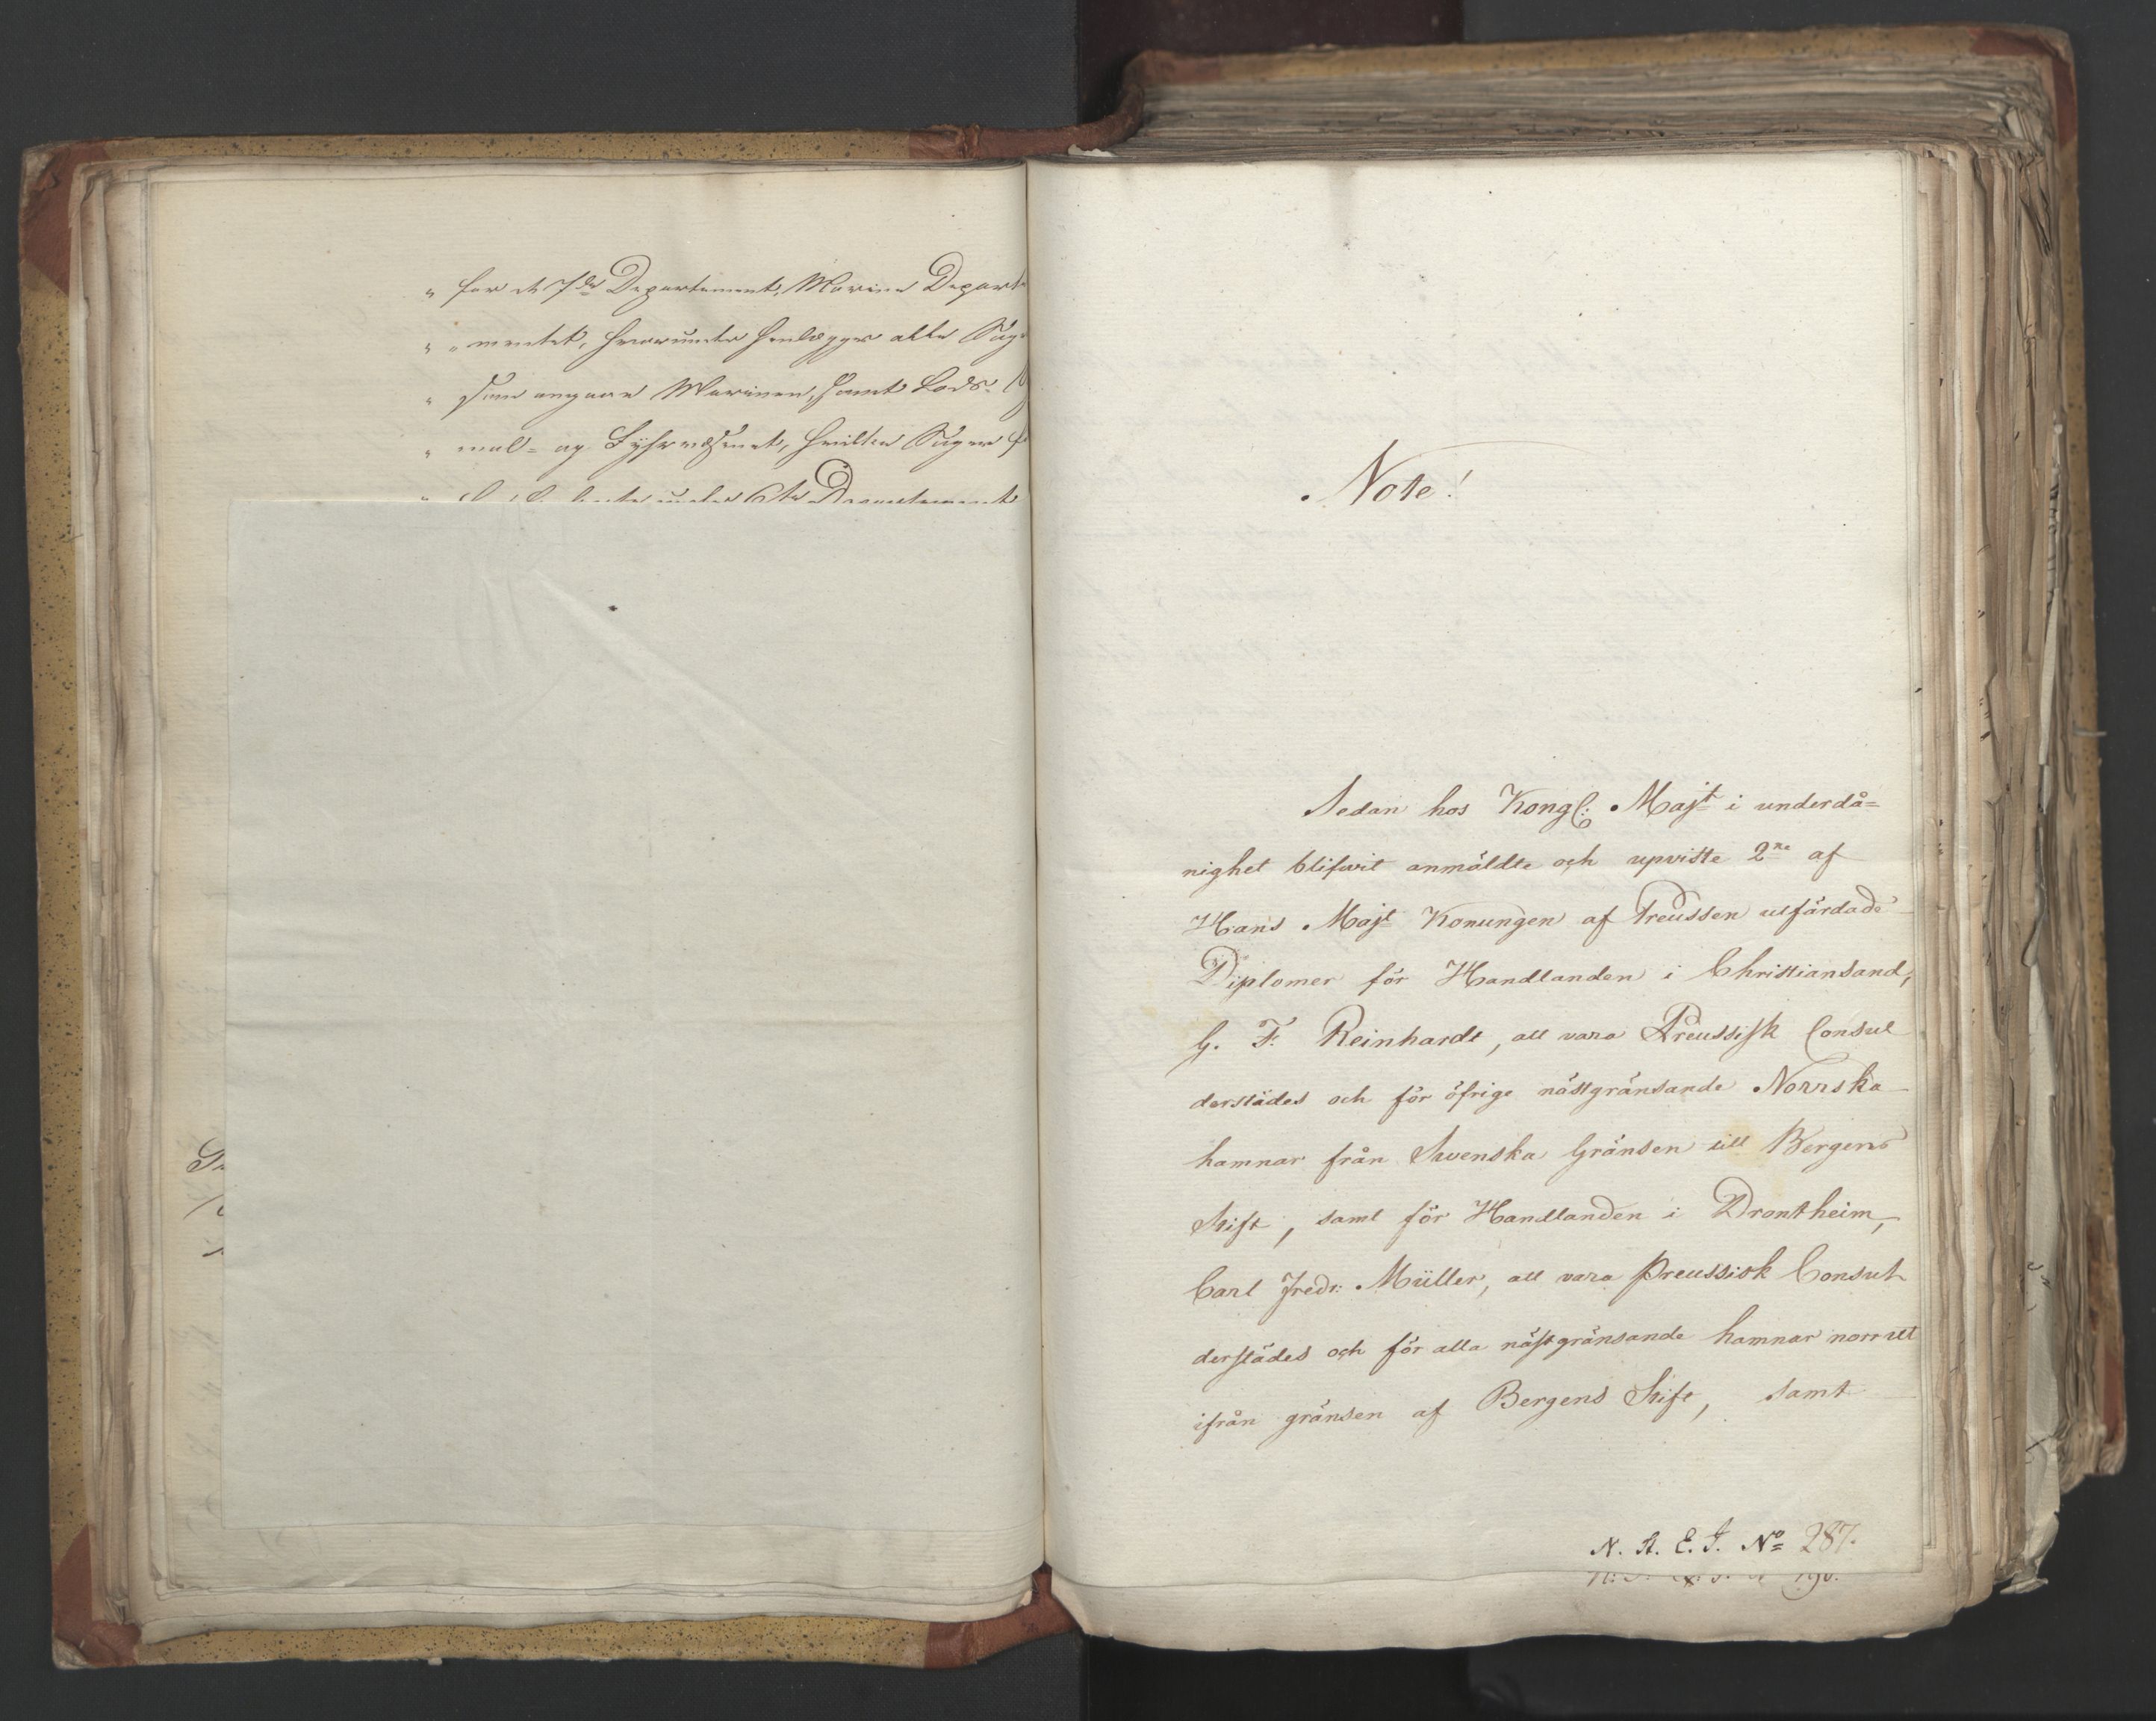 " for det 7de Departement, Marine Depart
" " mentet, hvorunder henlægges alle Sag
" som angaae Marinen, samt Lods-
" og Fyrvæsenet, hvilke Sager
" under 6te Departement
Note!
Sedan hos Kongl: Majt i underdå=
nighet blifwit anmäldte och upviste 2ne af
Hans Majt Konungen af Preussen utfärdade
Diplomer för Handlanden i Christiansand,
G. F. Reinhardt, att vara Preussisk Consul
derstädes och för öfrige nästgränsande Norrska
hamnar från Swenska Gränsen till Bergens
Stift, samt för Handlanden i Drontheim,
Carl Fredr: Müller, att vara Preussisk Consul
derstädes och för alla nästgränsande hamnar norrutt
ifrån gränsen af Bergens Stift, samt
N. A. E. J. No 287.